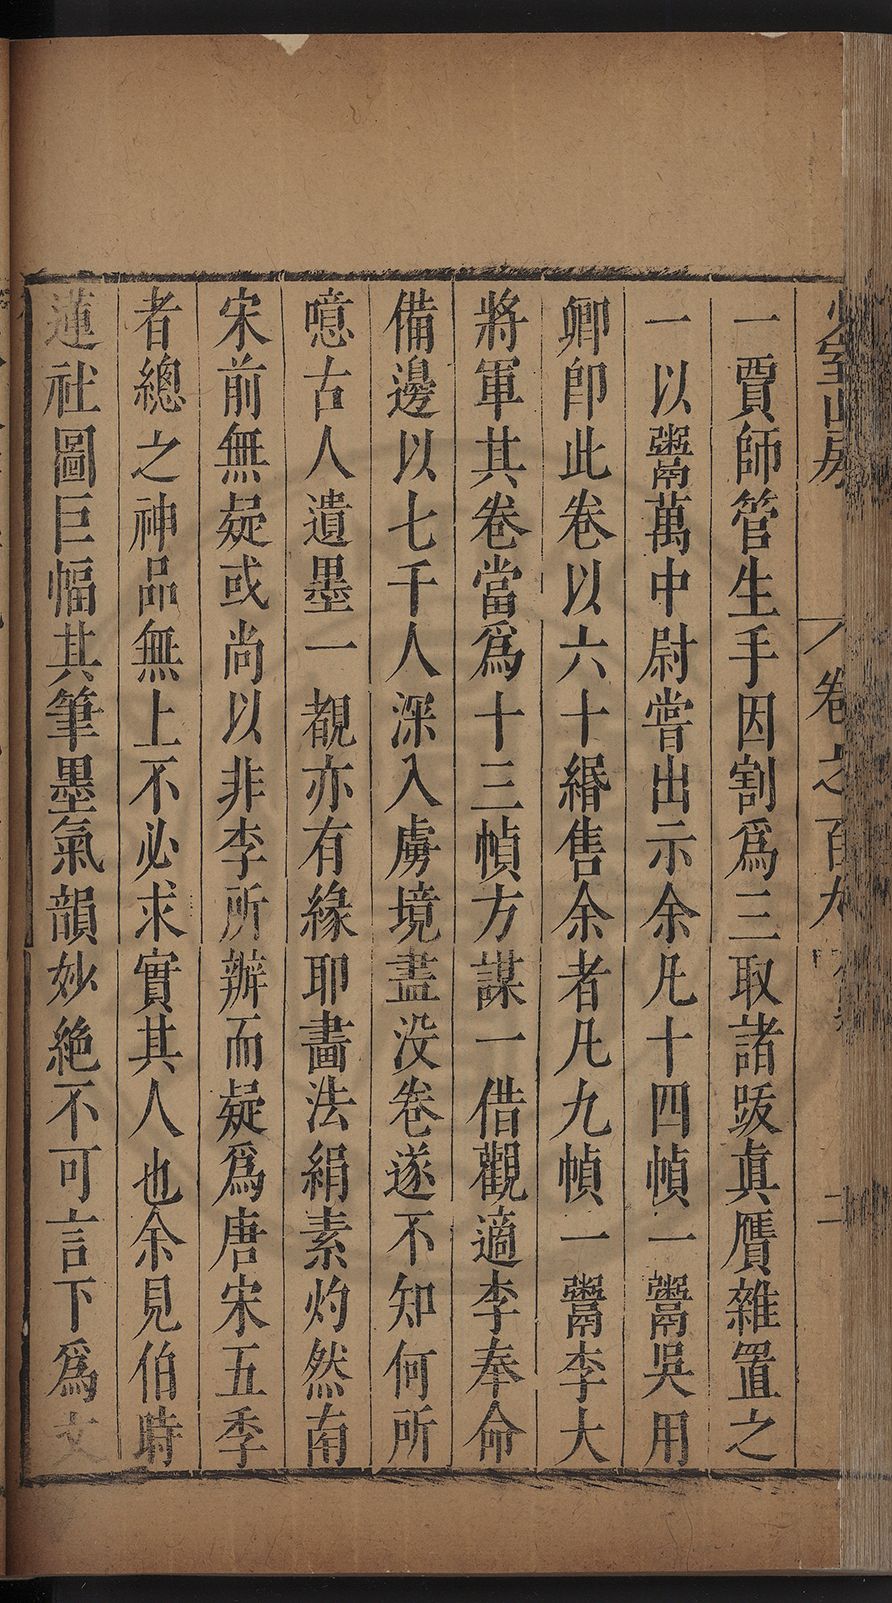 少室山房
卷之百九
二
一賈師管生手因割爲三取諸䟦眞贋雜置之
一以鬻萬中尉嘗出示余凡十四幀一鬻吳用
卿卽此卷以六十緡售余者凡九幀一鬻李大
將軍其卷當爲十三幀方謀一借觀適李奉命
備邊以七千人深入虜境盡没卷遂不知何所
噫古人遺墨一覩亦有緣耶畫法絹素灼然南
宋前無疑或尚以非李所辦而疑爲唐宋五季
者總之神品無上不必求實其人也余見伯時
蓮社圖巨幅其筆墨氣韻妙絶不可言下爲文